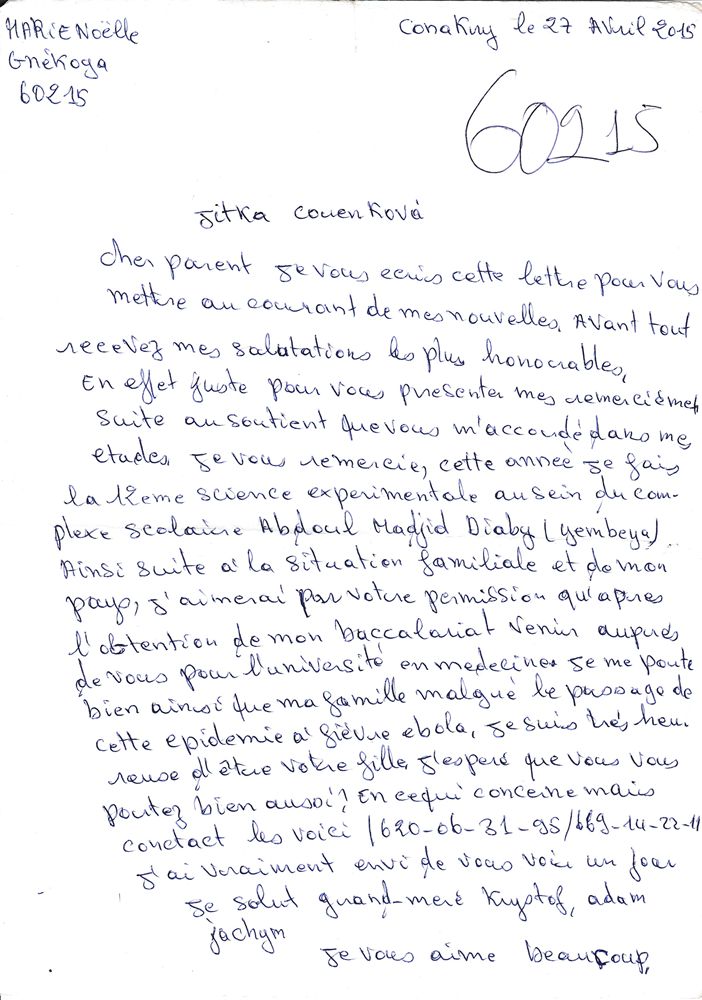 MARIE Noëlle
Gnékoga
60215
Conakry le 27 Avril 2015
60215
Jitka Couenková
cher parent je vous ecris cette lettre pour vous
mettre au courant de mes nouvelles. Avant tout
recevez mes salutations les plus honorables,
En effet juste pour vous presenter mes remerciemet
suite au soutient que vous m'accordé dans mes
etudes. Je vous remercie, cette année je fais
la 12eme science experimentale au sein du com-
plexe scolaire Abdoul Madjid Diaby (yembeya)
Ainsi suite à la situation familiale et de mon
pays, j'aimerai par votre permission qu'apres
l'obtention de mon baccalariat venir auprés
de vous pour l'université en medecine. Je me porte
bien ainsi que ma famille malgré le passage de
cette epidemie à fièvre ebola, je suis trés heu-
reuse d'être votre fille j'esperé que vous vous
portez bien aussi? En cequi concerne mais
conctact les voici /620-06-31-95/669-14-22-11
J'ai vraiment envi de vous voir un jour
je salut grand-meré Krystof, adam
jachym
Je vous aime beaucoup,